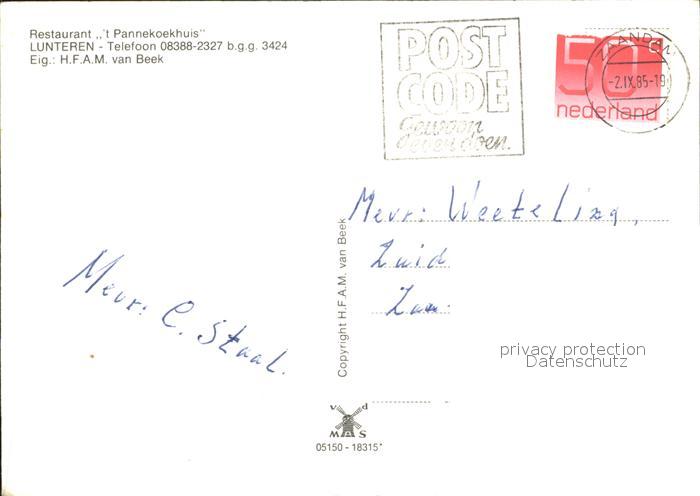 Restaurant „'t Pannekoekhuis"
LUNTEREN - Telefoon 08388-2327 b.g.g. 3424
Eig.: H.F.A.M. van Beek
POST
CODE
gewoon
even doen.
ZAANDAM
-2.IX.85-19
50
nederland
Mevr: Weeteling,
Zuid
Mevr: C. Staal.
Copyright H.F.A.M. van Beek
privacy protection
Datenschutz
v d
MAS
05150 - 18315*